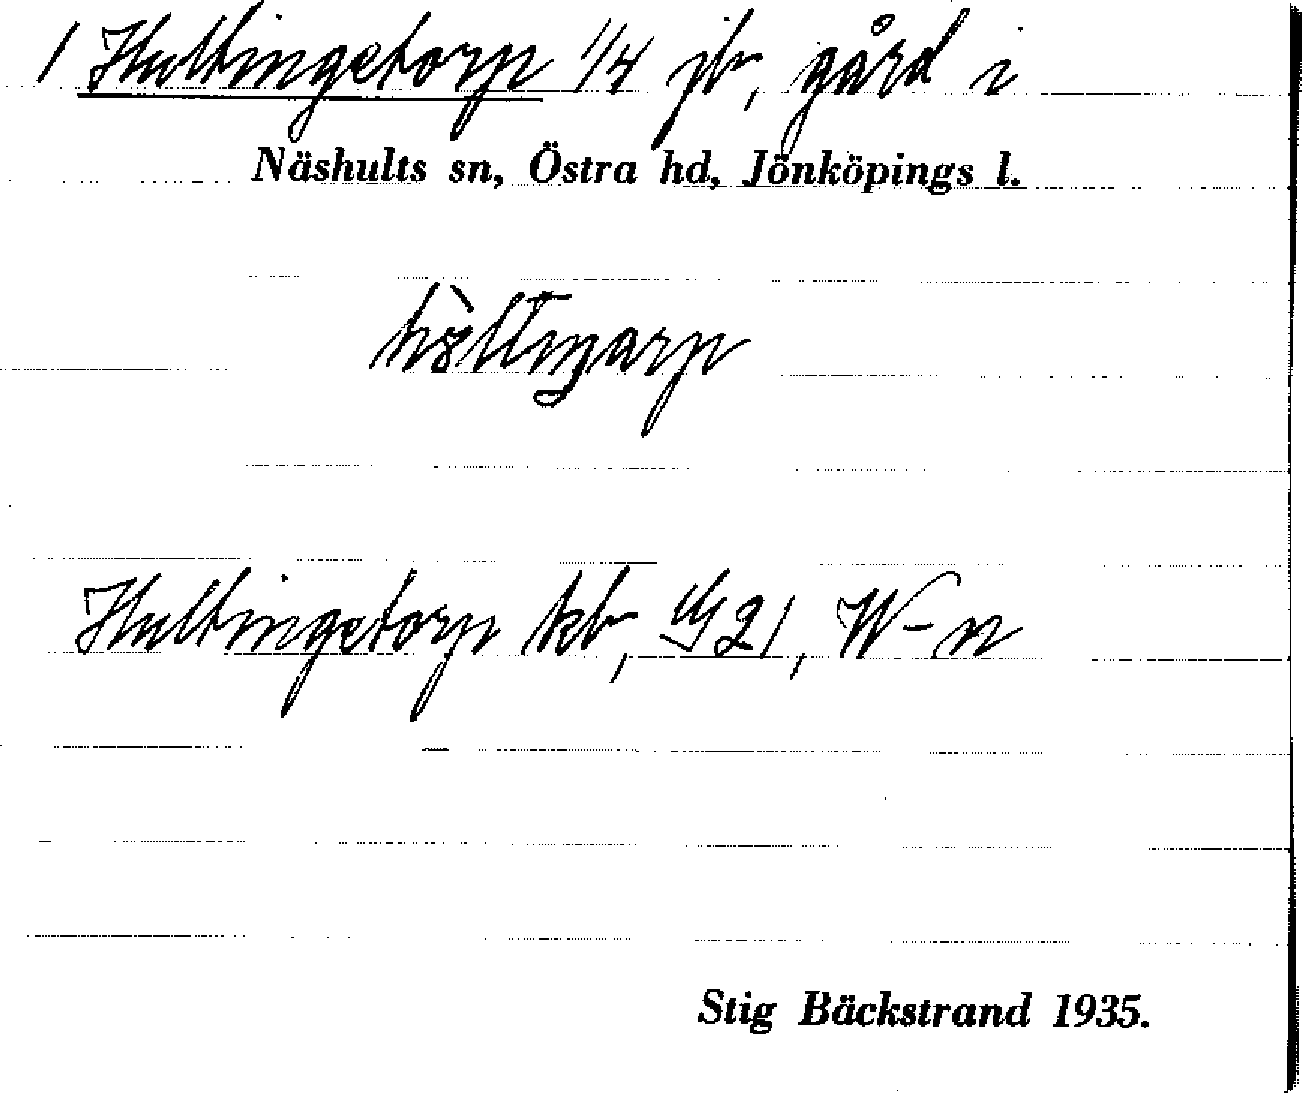 1 Hultingetorp 1/4 jb, gård i
Näshults sn, Östra hd, Jönköpings l.
Hultingetorp kb, 21, W-n
Stig Bäckstrand 1935.